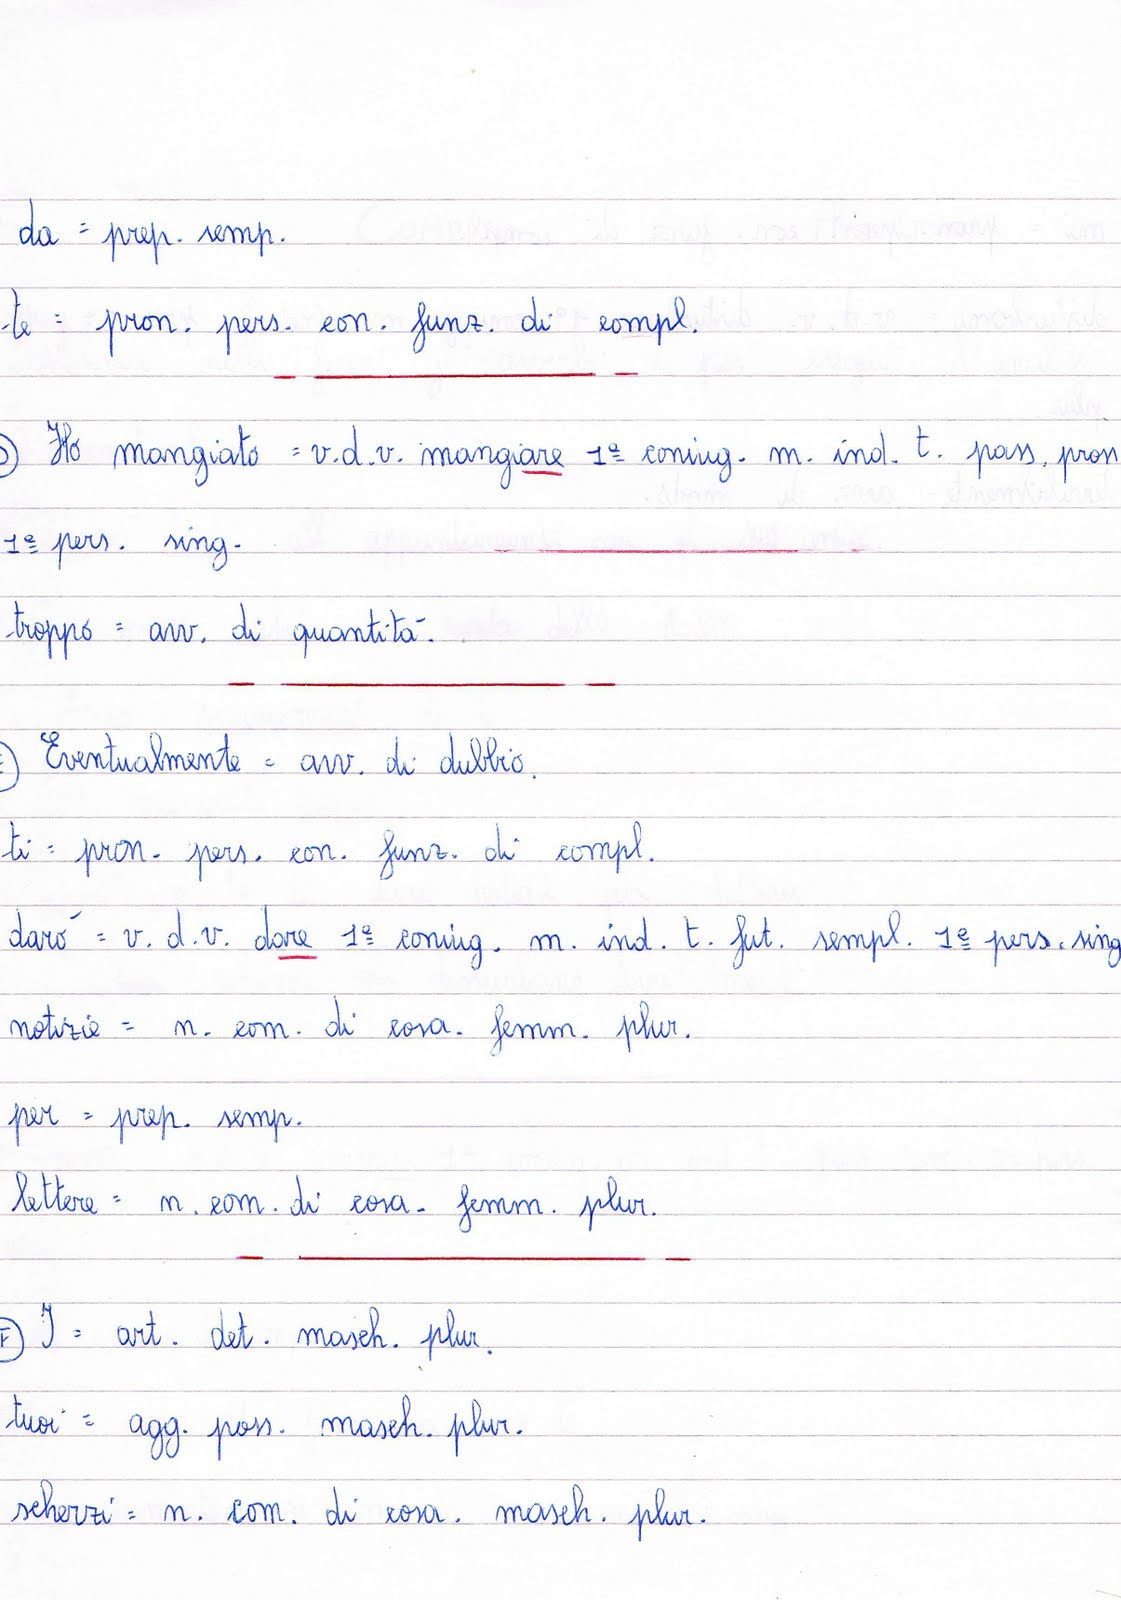 da = prep. semp.
te = pron. pers. con. funz. di compl.
D) Ho mangiato = v.d.v. mangiare 1ª coniug. m. ind. t. pass. pross
1ª pers. sing.
troppo = avv. di quantità.
E) Eventualmente = avv. di dubbio.
ti = pron. pers. con. funz. di compl.
darò = v. d. v. dare 1ª coniug. m. ind. t. fut. sempl. 1ª pers. sing
notizie = n. com. di cosa. femm. plur.
per = prep. semp.
lettere = n. com. di cosa. femm. plur.
F) I = art. det. masch. plur.
tuoi = agg. poss. masch. plur.
scherzi = n. com. di cosa. masch. plur.